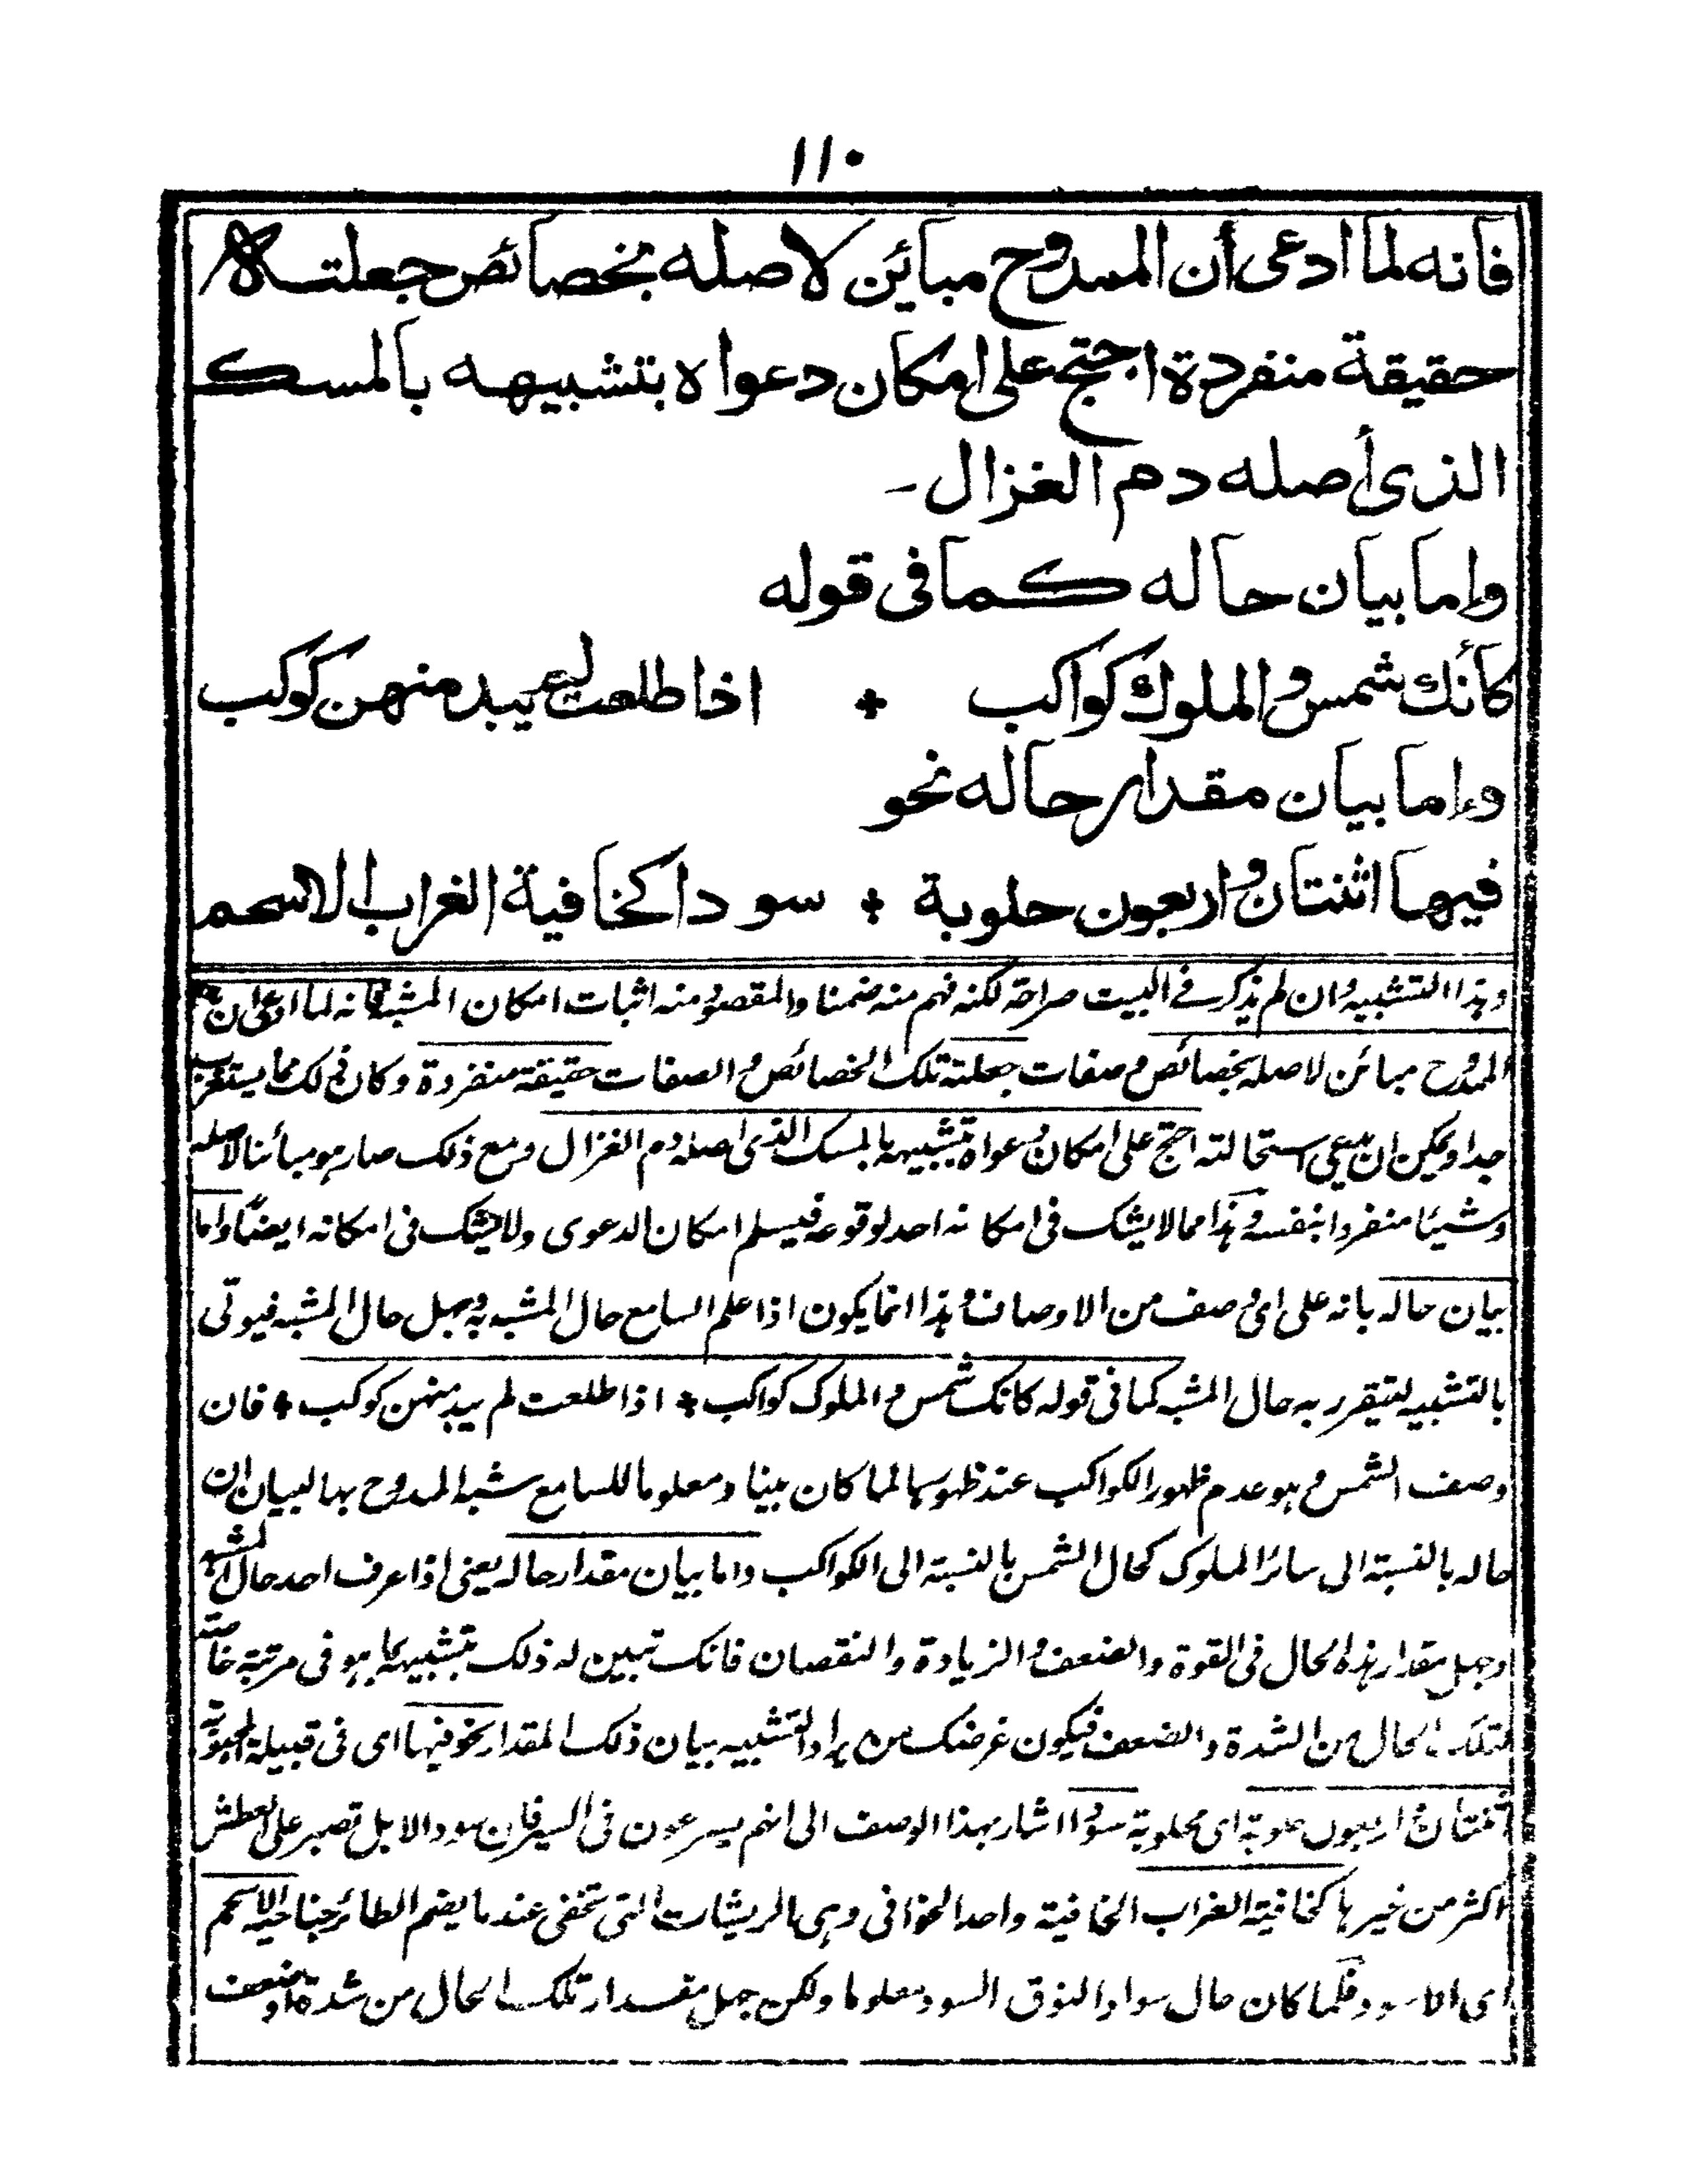 ١١٠
فانه لما ادعى أن الممدوح مبائن لاصله بخصائص جعلته
حقيقة منفردة احتج على امكان دعواه بتشبيهه بالمسك
الذى أصله دم الغزال -
وإما بيان حاله كما فى قوله
كأنك شمس والملوك كواكب + اذا طلعت لم يبد منهن كوكب
وإما بيان مقدار حاله نحو
فيها اثنتان واربعون حلوبة + سودا كخافية الغراب الاسحم
وهذا التشبيه وان لم يذكر فے البيت صراحة لكنه فهم منه ضمنا والمقصود منه اثبات امكان المشبه فانه لما ادعى ان
الممدوح مبائن لاصله بخصائص وصفات جعلته تلك الخصائص والصفات حقيقة منفردة وكان ذلك مما يستغرب
جدا ويمكن ان يدعى استحالته احتج على امكان دعواه بتشبيهه بالمسك الذى اصله دم الغزال ومع ذلك صار هو مبائنا لاصله
وشيئا منفردا بنفسه وهذا مما لا يشك فى امكانه احد لوقوعه فيسلم امكان الدعوى ولا يشك فى امكانه ايضا واما
بيان حاله بانه على اى وصف من الاوصاف وهذا انما يكون اذا علم السامع حال المشبه به وجهل حال المشبه فيوتى
بالتشبيه ليتقرر به حال المشبه كما فى قوله كانك شمس والملوك كواكب + اذا طلعت لم يبد منهن كوكب + فان
وصف الشمس وهو عدم ظهور الكواكب عند ظهورها لما كان بينا ومعلوما للسامع شبه الممدوح بها لبيان ان
حاله بالنسبة الى سائر الملوك كحال الشمس بالنسبة الى الكواكب واما بيان مقدار حاله يعنى اذا عرف احد حال المشبه
وجهل مقدار هذه الحال فى القوة والضعف والزيادة والنقصان فانك تبين له ذلك بتشبيهه بما هو فى مرتبة خاصة
لتلك الحال من الشدة والضعف فيكون غرضك من ايراد التشبيه بيان ذلك المقدار نحو فيها اى فى قبيلة
اثنتان واربعون حلوبة اى محلوبة سودا اشار بهذا الوصف الى انهم يسرعون فى السير فان سود الابل تصبر على العطش
اكثر من غيرها كخافية الغراب الخافية واحد الخوافى وهى الريشات التى تخفى عند ما يضم الطائر جناحيه الاسحم
اى الاسود فلما كان حال سواد النوق السود معلوما ولكن جهل مقدار تلك الحال من شدة او ضعف